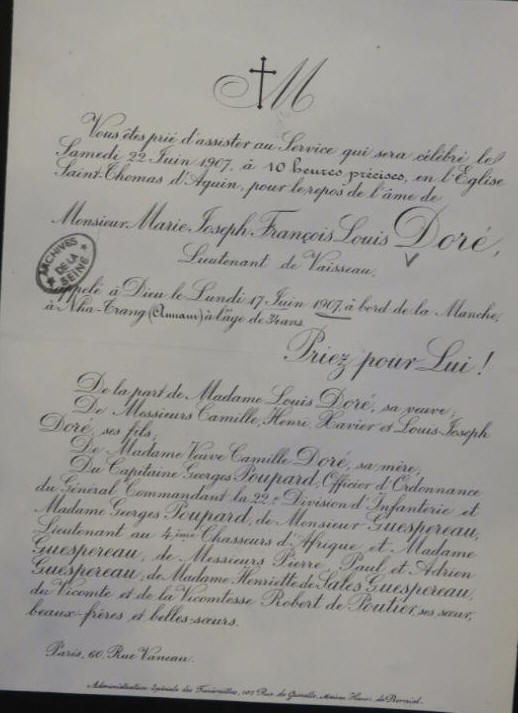 M
Vous êtes prié d'assister au Service qui sera célébré le
Samedi 22 Juin 1907, à 10 heures précises, en l'Eglise
Saint-Thomas d'Aquin, pour le repos de l'âme de
Monsieur Marie Joseph François Louis Doré,
Lieutenant de Vaisseau,
ARCHIVES DE LA SEINE
rappelé à Dieu le Lundi 17 Juin 1907, à bord de la Manche,
à Nha-Trang (Annam) à l'âge de 34 ans.
Priez pour Lui !
De la part de Madame Louis Doré, sa veuve;
De Messieurs Camille, Henri, Xavier et Louis-Joseph
Doré, ses fils,
De Madame Veuve Camille Doré, sa mère,
Du Capitaine Georges Poupard, Officier d'Ordonnance
du Général Commandant la 22e Division d'Infanterie et
Madame Georges Poupard, de Monsieur Guespereau,
Lieutenant au 4ème Chasseurs d'Afrique et Madame
Guespereau, de Messieurs Pierre, Paul et Adrien
Guespereau, de Madame Henriette de Sales Guespereau,
du Vicomte et de la Vicomtesse Robert de Poutier, ses sœur,
beaux-frères et belles-sœurs.
Paris, 60, Rue Vaneau.
Administration Spéciale des Funérailles, Rue de Grenelle, Maison Henri de Borniol.